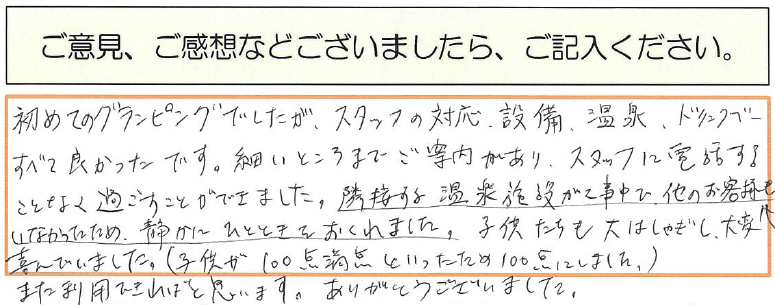 ご意見、ご感想などございましたら、ご記入ください。
初めてのグランピングでしたが、スタッフの対応、設備、温泉、ドリンクバー
すべて良かったです。細いところまでご案内があり、スタッフに電話する
ことなく過ごすことができました。隣接する温泉施設が工事中で、他のお客様も
いなかったため、静かにひとときをおくれました。子供たちも大はしゃぎし、大変
喜んでいました。(子供が100点満点といったため100点にしました。)
また利用できればと思います。ありがとうございました。